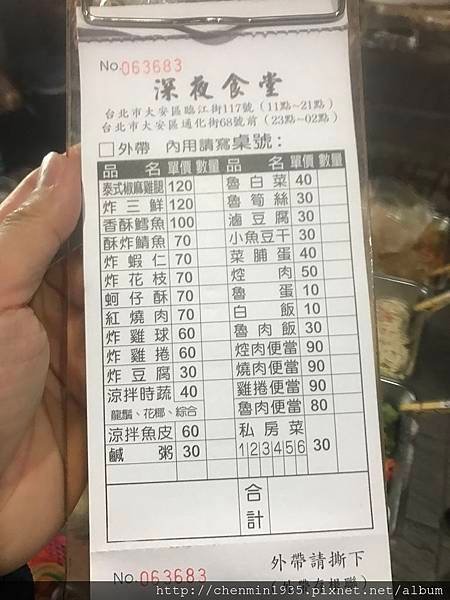 No. 063683
深夜食堂
台北市大安區臨江街117號(11點~21點)
台北市大安區通化街68號前(23點~02點)
□外帶 內用請寫桌號:
品名 單價 數量 品名 單價 數量
泰式椒麻雞腿 120 魯白菜 40
炸三鮮 120 魯筍絲 30
香酥鱈魚 100 滷豆腐 30
酥炸鯖魚 70 小魚豆干 30
炸蝦仁 70 菜脯蛋 40
炸花枝 70 焢肉 50
蚵仔酥 70 魯蛋 10
紅燒肉 70 白飯 10
炸雞球 60 魯肉飯 30
炸雞捲 60 焢肉便當 90
炸豆腐 30 燒肉便當 90
涼拌時蔬 40 雞捲便當 90
龍鬚、花椰、綜合 魯肉便當 80
涼拌魚皮 60 私房菜 30
鹹粥 30 1 2 3 4 5 6
合計
外帶請撕下
No. 063683
http://chenmin1935.pixnet.net/album